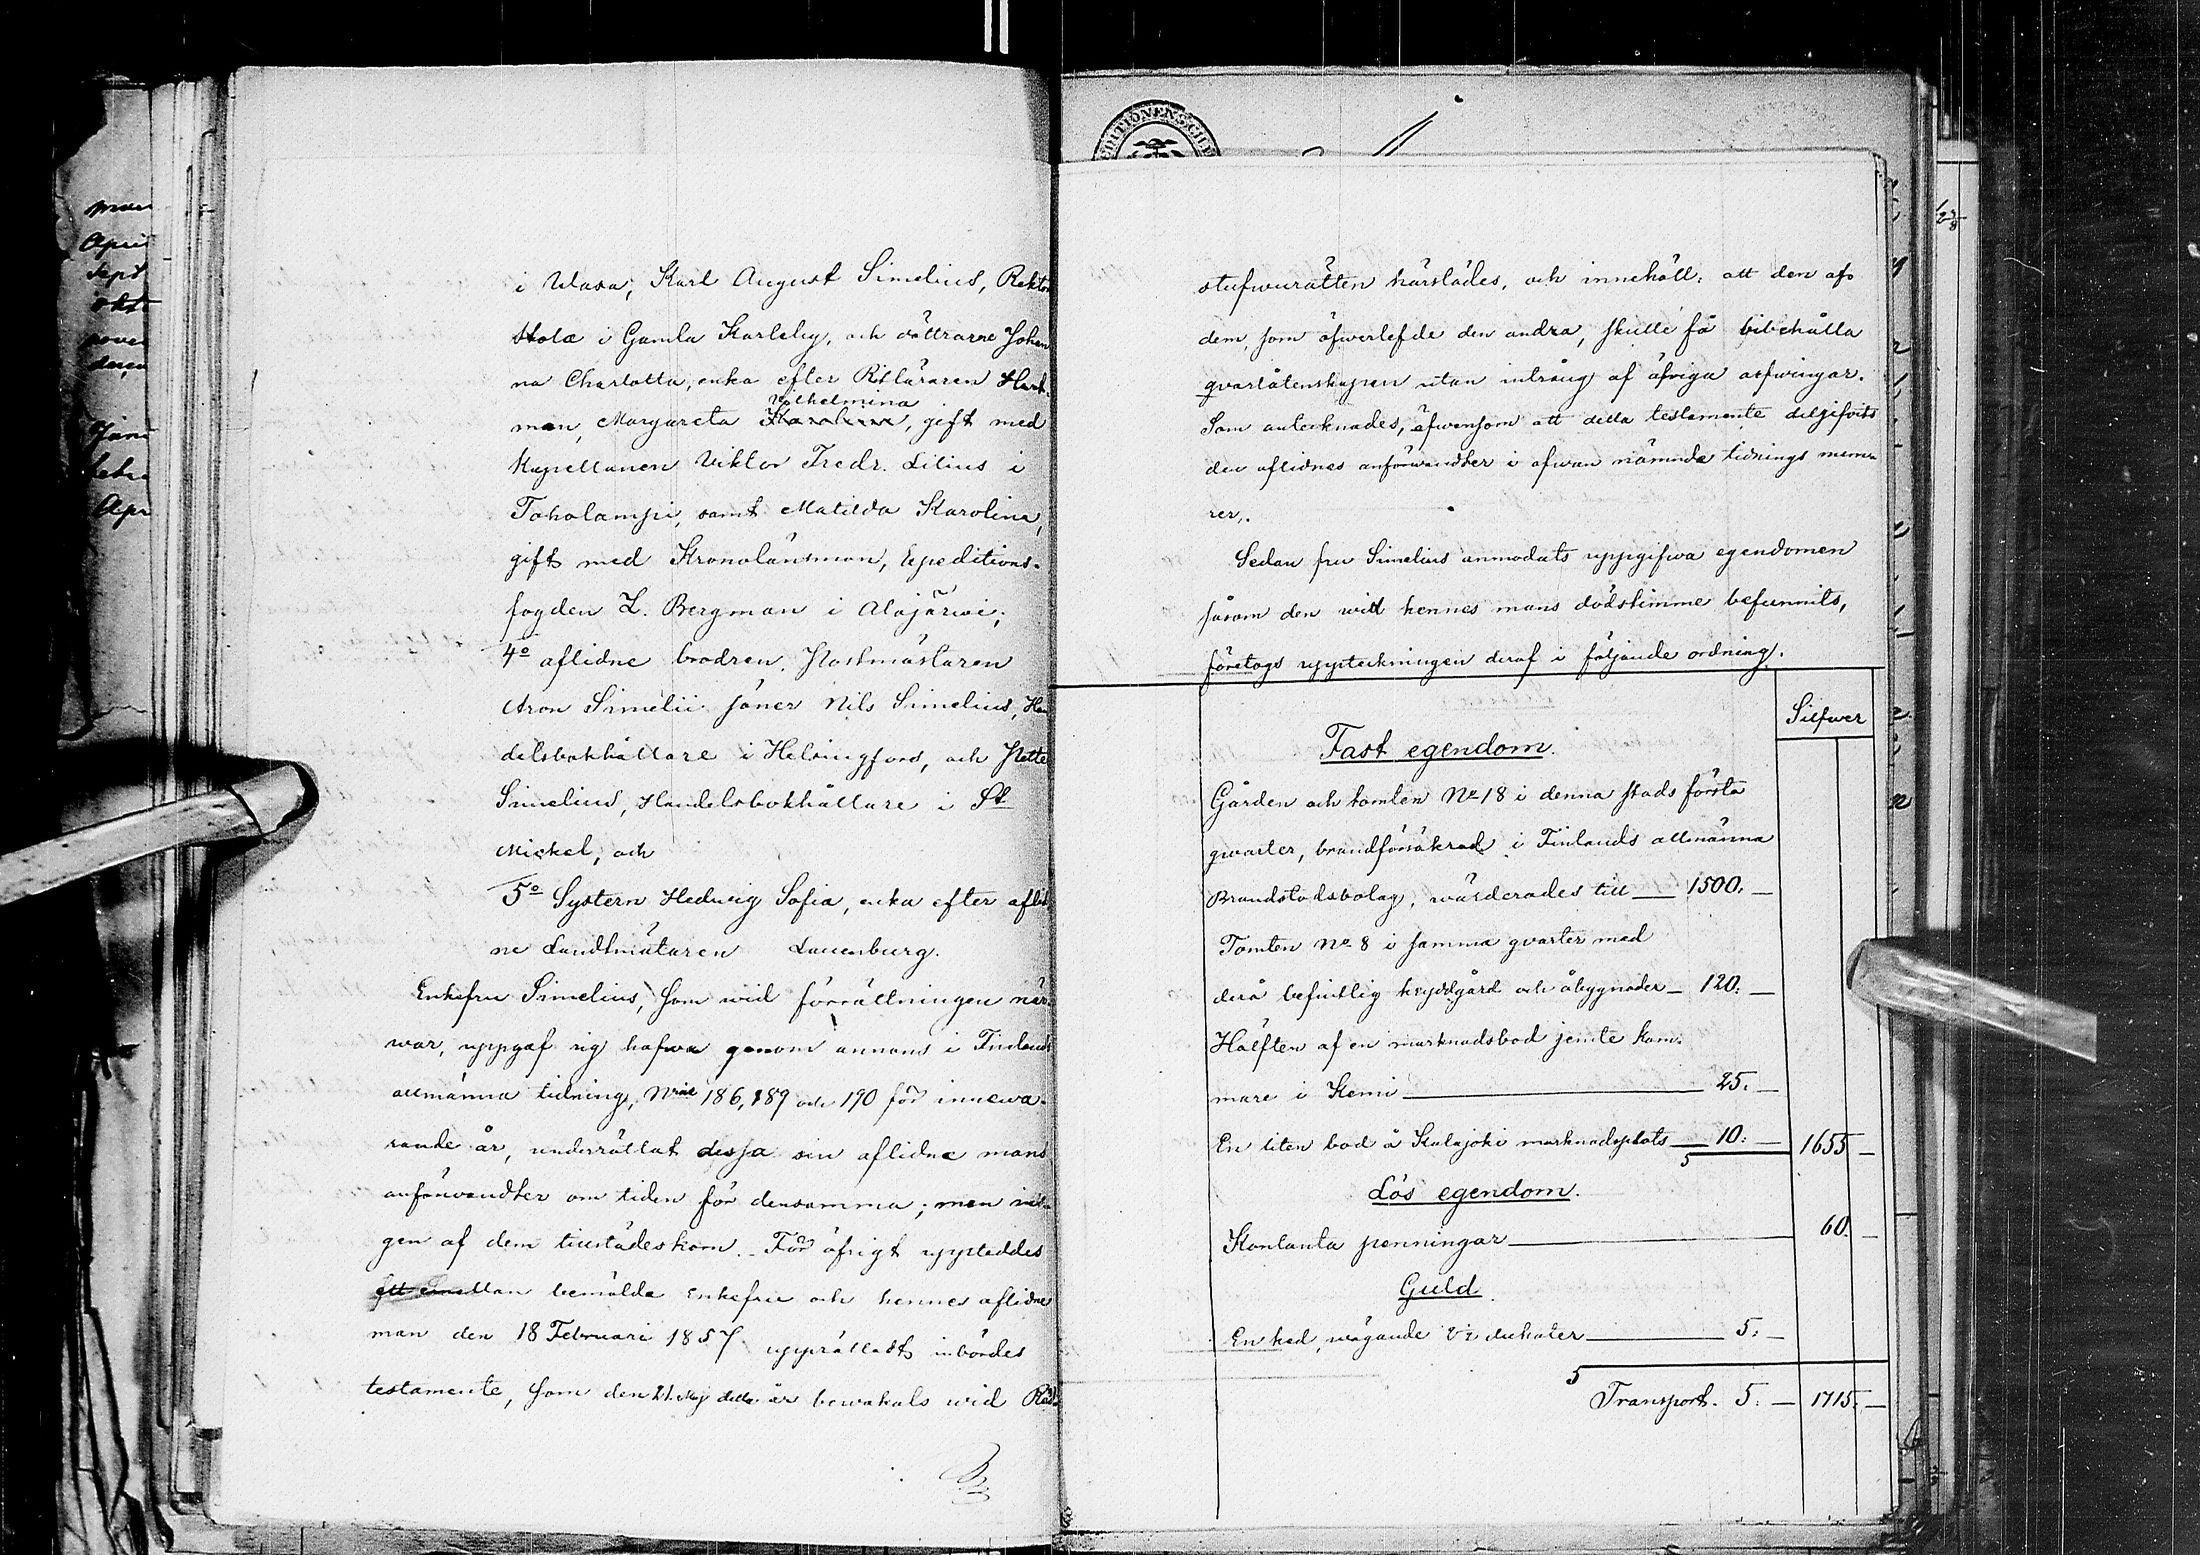 i Wasa; Karl August Simelius, Rektor
Skola i Gamla Karleby, och döttrarne Johan
na Charlotta, enka efter Ritläraren Hart-
Wilhelmina
man, Margareta Karolina, gift med
Kapellanen Viktor Fredr. Lilius i
Toholampi, samt Matilda Karolina,
gift med Kronolänsman, Expeditions-
fogden L. Bergman i Alajärwi;
4o aflidne brodren, Postmästaren
Aron Simelii söner Nils Simelius, Han
delsbokhållare i Helsingfors, och
Simelius, Handelsbokhållare i St
Mickel, och
5o Systern Hedwig Sofia, enka efter aflid
ne Landtmätaren Lauenburg.
Enkefru Simelius, som wid förrättningen när-
war, uppgaf sig hafwa genom annons i Finlands
allmänna tidning, Nris 186, 189 och 190 för innewa-
rande år, underrättat dessa sin aflidne mans
anförwandter om tiden för densamma; men in-
gen af dem tillstädeskom. För öfrigt uppteddes
ett emellan bemälde Enkefru och hennes aflidne
man den 18 Februari 1857 upprättadt inbördes
testamente, som den 21 Maj detta år bewakats wid Råd-
stufwurätten härstädes, och innehåll: att den af
dem, som öfwerlefde den andra, skulle få bibehålla
qvarlåtenskapen utan intrång af öfriga arfwingar.
Som antecknades, äfwensom att detta testamente delgifvits
den aflidnes anförwandter i ofwan nämnde tidnings numm
rer.
Sedan fru Simelius anmodats uppgifwa egendomen
såsom den wid hennes mans dödstimme befunnits,
företogs uppteckningen deraf i följande ordning.
Silfwer
Fast egendom.
Gården och tomten No 18 i denna stads första
qwarter, brandförsäkrad i Finlands allmänna
Brandstodsbolag, wärderades till — 1500. —
Tomten No 8 i samma qvarter med
derå befintlig kryddgård och åbygnader — 120. —
Hälften af en marknadsbod jemte kam-
mare i Kemi — 25. —
En liten bod å Kalajoki marknadsplats — 10. — 1655 —
Lös egendom.
Kontanta penningar — 60. —
Guld.
En ked, wägande 2 1/2 dukater — 5. —
Transport. 5. — 1715. —